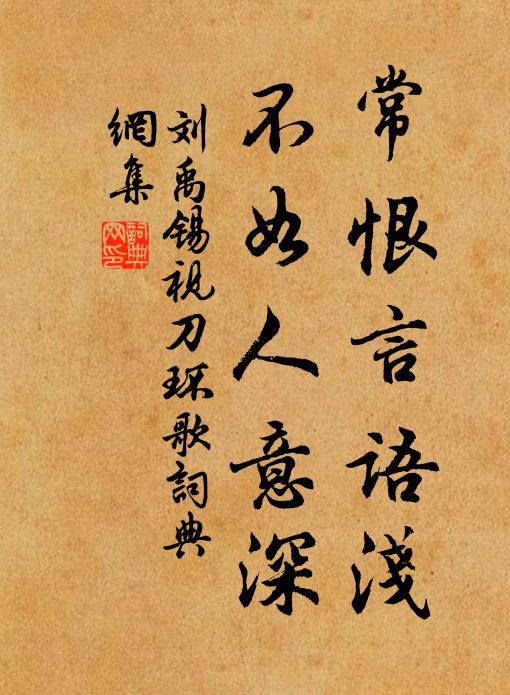 常恨言語淺
不如人意深
刘禹锡视刀环歌詞典
網集
詞典
网印